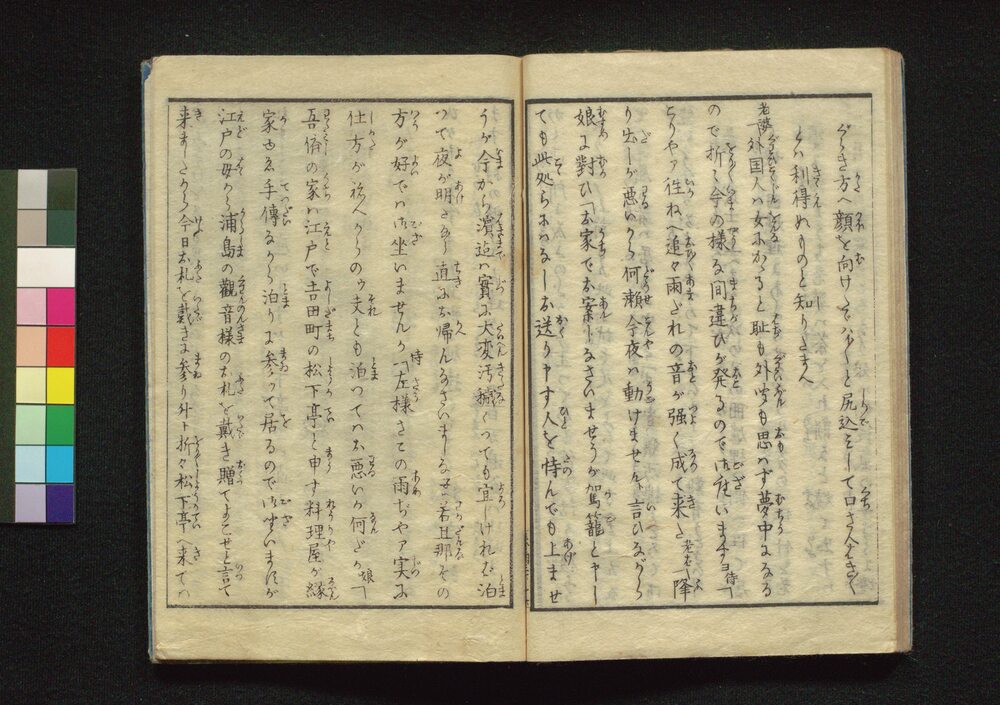 き方へ顔を向けてハ尻込をして口さへきく
とハ利得ぬものと知りたまへ
老婆 外国人ハ女にかゝると耻も外聞も思ハず夢中になる
ので折々今の様な間違ひが発るので御仕います 侍「
どりやア往ねへ追々雨だれの音が強く成て来た 老女「降
り出しが悪いから何瀬今夜ハ動けませんト言ひながら
娘に對ひ「お家でお案じなさいませうが駕籠と申し
ても此処らにハなしお送り申す人を恃んでも上ませ
うが今から濱迄ハ實に大変汚穢くつても宜しければ泊
つて夜が明たら直にお帰んなさいましなせ 若旦那その
方が好でハ御坐いませんか 侍「左様さこの雨ぢやア実に
仕方が祢へからのウ夫とも泊つてハお悪いか何だか 娘「
吾儕の家ハ江戸で吉田町の松下亭と申す料理屋が縁
家ゆゑ手傳ながら泊りに参つて居るので御坐いますが
江戸の母から浦島の觀音様のお札を戴き贈てよこせと言て
来ましたから今日お札を戴きに参り外ト折々松下亭へ来てハ